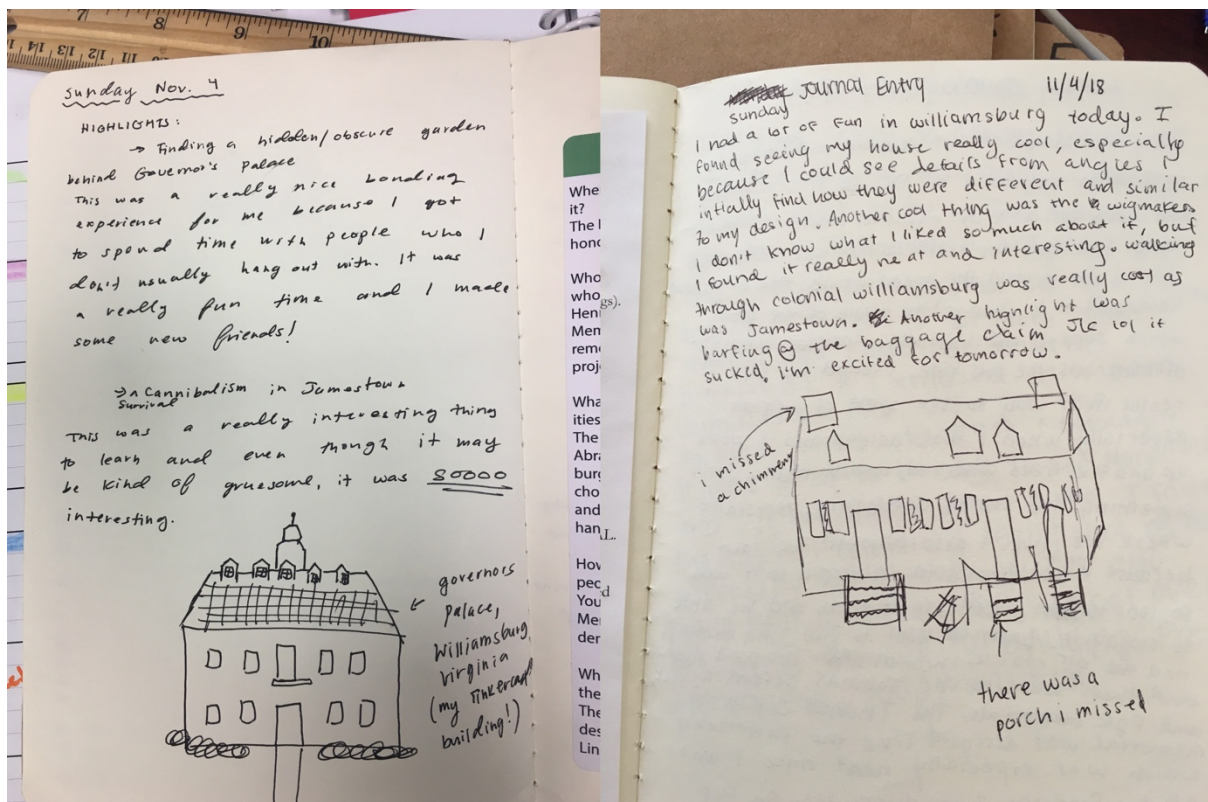 7 8 9 10
sunday Nov. 4
HIGHLIGHTS:
→ Finding a hidden/obscure garden
behind Governor's Palace
This was a really nice bonding
experience for me because I got
to spend time with people who I
don't usually hang out with. It was
a really fun time and I made
some new friends!
→ ^ Cannibalism in Jamestown
survival
This was a really interesting thing
to learn and even though it may
be kind of gruesome, it was SOOOO
interesting.
← governors
palace,
Williamsburg
virginia
(my Tinkercad
building!)
Whe
it?
The
hond
Who
who
Heni
Mem
remo
proj
Wha
ities
The
Abra
burg
cho
and
han
How
peo
You
Mer
der
Wh
the
The
des
Lin
gs).
AL.
d
Journal Entry 11/4/18
sunday
I had a lot of fun in williamsburg today. I
found seeing my house really cool, especially
because I could see details from angles I
intially find how they were different and similar
to my design. Another cool thing was the wigmakers
I don't know what I liked so much about it, but
I found it really neat and interesting. walking
through colonial williamsburg was really cool as
was Jamestown. Another highlight was
barfing @ the baggage claim JK lol it
sucked. i'm excited for tomorrow.
i missed
a chimney
there was a
porch i missed